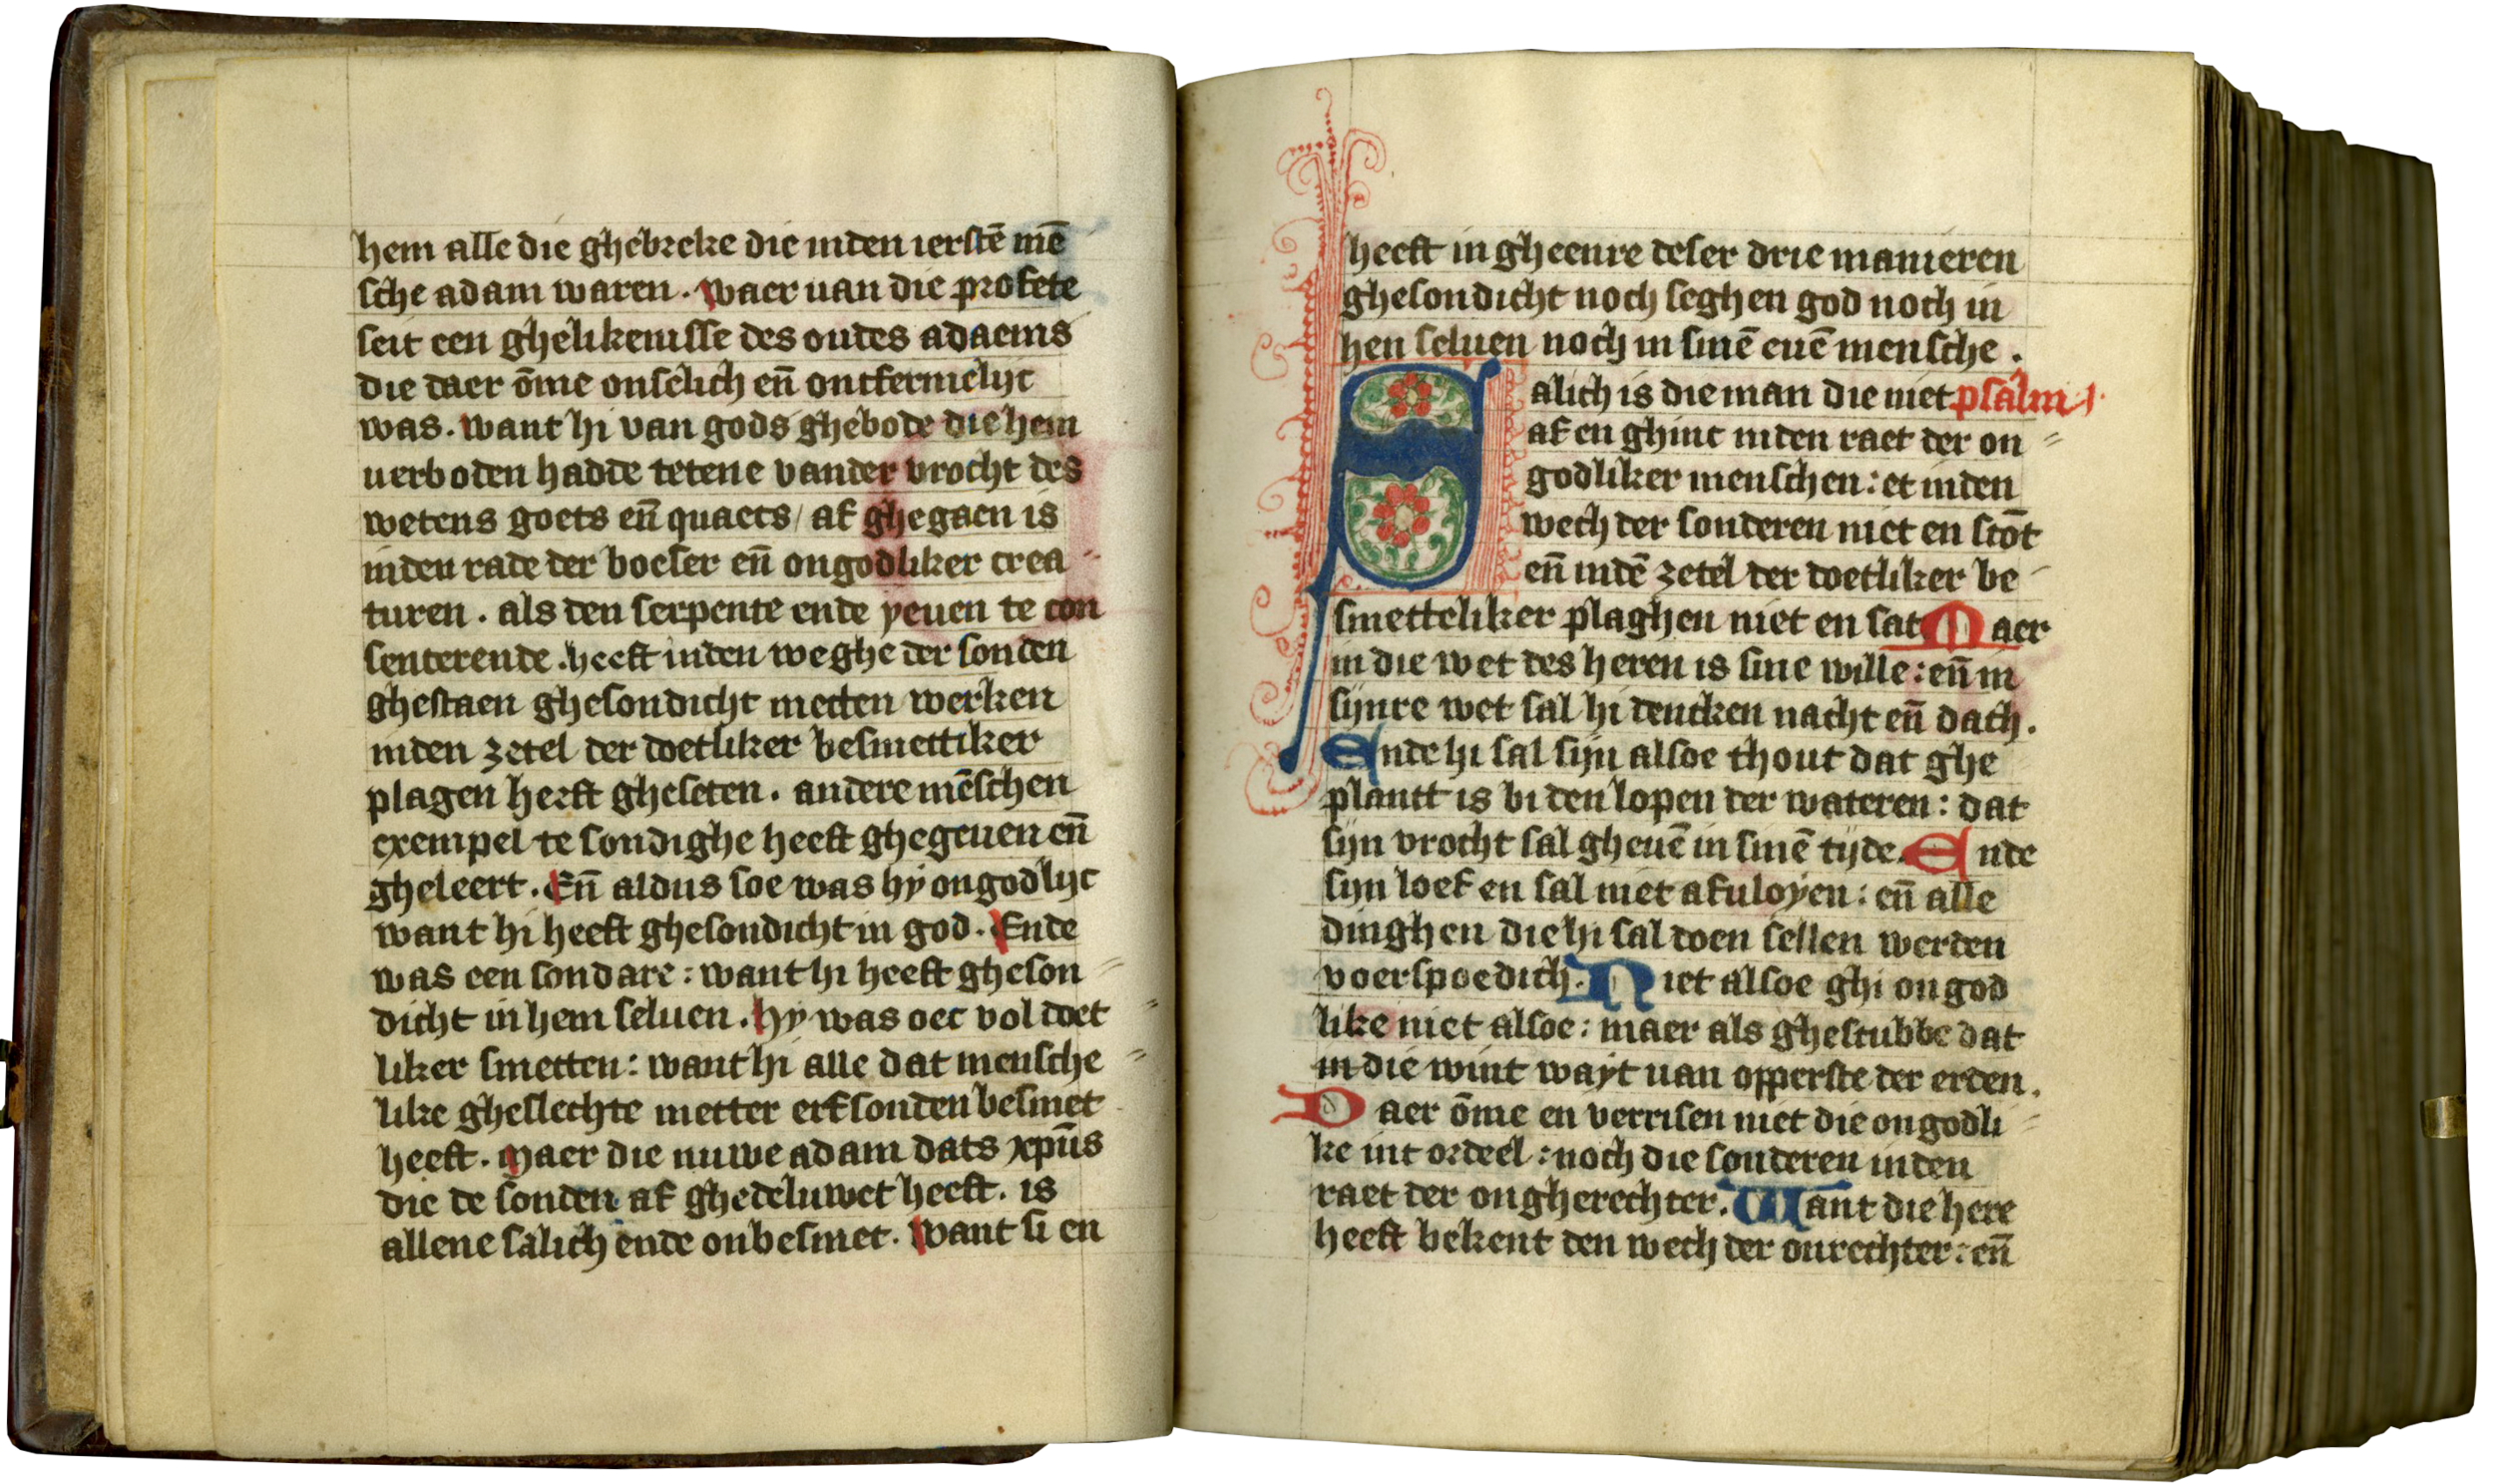 hem alle die ghebreke die inden ierstē mē
sche adam waren. waer uan die profete
seit een ghelikenisse des oudes adaems
die daer ōme onselich eñ ontfermelijc
was. want hi van gods ghebode die hem
uerboden hadde tetene vander vrocht des
wetens goets eñ quaets / af ghegaen is
inden rade der boeser eñ ongodliker crea
turen. als den serpente ende yeuen te con
senterende. heeft inden weghe der sonden
ghestaen ghesondicht metten werken
inden zetel der doetliker besmettiker
plagen heeft gheseten. andere mēschen
exempel te sondighe heeft ghegeuen eñ
gheleert. Eñ aldus soe was hy ongodlijc
want hi heeft ghesondicht in god. Ende
was een sondare: want hi heeft gheson
dicht in hem seluen. hy was oec vol doet
liker smetten: want hi alle dat mensche
like gheslechte metter erfsonden besmet
heeft. Maer die nuwe adam dats xpūs
die de sonden af ghedeluwet heeft. is
allene salich ende onbesmet. want si en
heeft in gheenre deser drie manieren
ghesondicht noch seghen god noch in
hen seluen noch in sinē euē mensche.
Salich is die man die niet psalm 1.
af en ghinc inden raet der on
godliker menschen: et inden
wech der sonderen niet en stōt
eñ indē zetel der doetliker be
smetteliker plaghen niet en sat Maer
in die wet des heren is sine wille: eñ in
sijnre wet sal hi dencken nacht eñ dach.
Ende hi sal sijn alsoe thout dat ghe
plantt is bi den lopen der wateren: dat
sijn vrocht sal gheuē in sinē tijde. Ende
sijn loef en sal niet afuloyen: eñ alle
dinghen die hi sal doen sellen werden
voerspoedich. Niet alsoe ghi ongod
like niet alsoe: maer als ghestubbe dat
in die wint wayt uan opperste der erden.
Daer ōme en verrisen niet die ongodli
ke int ordeel: noch die sonderen inden
raet der ongherechter. Want die here
heeft bekent den wech der onrechter: eñ